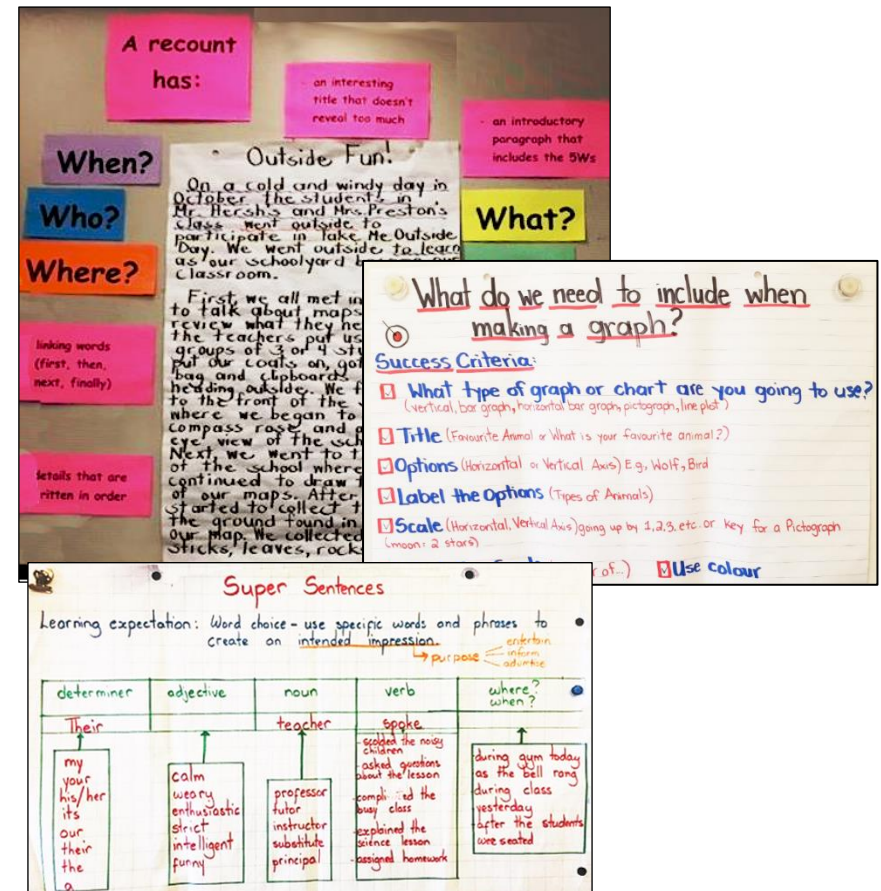 A recount
has:
- an interesting
title that doesn't
reveal too much
- an introductory
paragraph that
includes the 5Ws
When?
Who?
Where?
What?
linking words
(first, then,
next, finally)
details that are
written in order
Outside Fun!
On a cold and windy day in
October the students in
Mr. Hersh's and Mrs. Preston's
class went outside to
participate in Take Me Outside
Day. We went outside to learn
as our schoolyard
classroom.
First, we all met in
to talk about maps
review what they
the teachers put us
groups of 3 or 4
put our coats on, got
bag and clipboards
heading outside. We
to the front of the
where we began to
compass rose and
eye view of the
Next, we went to
of the school where
continued to draw
of our maps. After
started to collect
the ground found in
our map. We collected
sticks, leaves, rocks
What do we need to include when
making a graph?
Success Criteria:
What type of graph or chart are you going to use?
(vertical, bar graph, horizontal bar graph, pictograph, line plot)
Title (Favourite Animal or What is your favourite animal?)
Options (Horizontal or Vertical Axis) E.g, Wolf, Bird
Label the Options (Types of Animals)
Scale (Horizontal, Vertical Axis) going up by 1,2,3, etc. or key for a Pictograph
(moon = 2 stars)
of...) Use colour
Super Sentences
Learning expectation: Word choice - use specific words and phrases to
create an intended impression.
purpose
entertain
inform
advertise
determiner adjective noun verb where?
when?
Their teacher spoke
my
your
his/her
its
our
their
the
a
calm
weary
enthusiastic
strict
intelligent
funny
professor
tutor
instructor
substitute
principal
- scolded the noisy
children
- asked questions
about the lesson
- the
busy class
- explained the
science lesson
- assigned homework
during gym today
as the bell rang
during class
yesterday
after the students
were seated